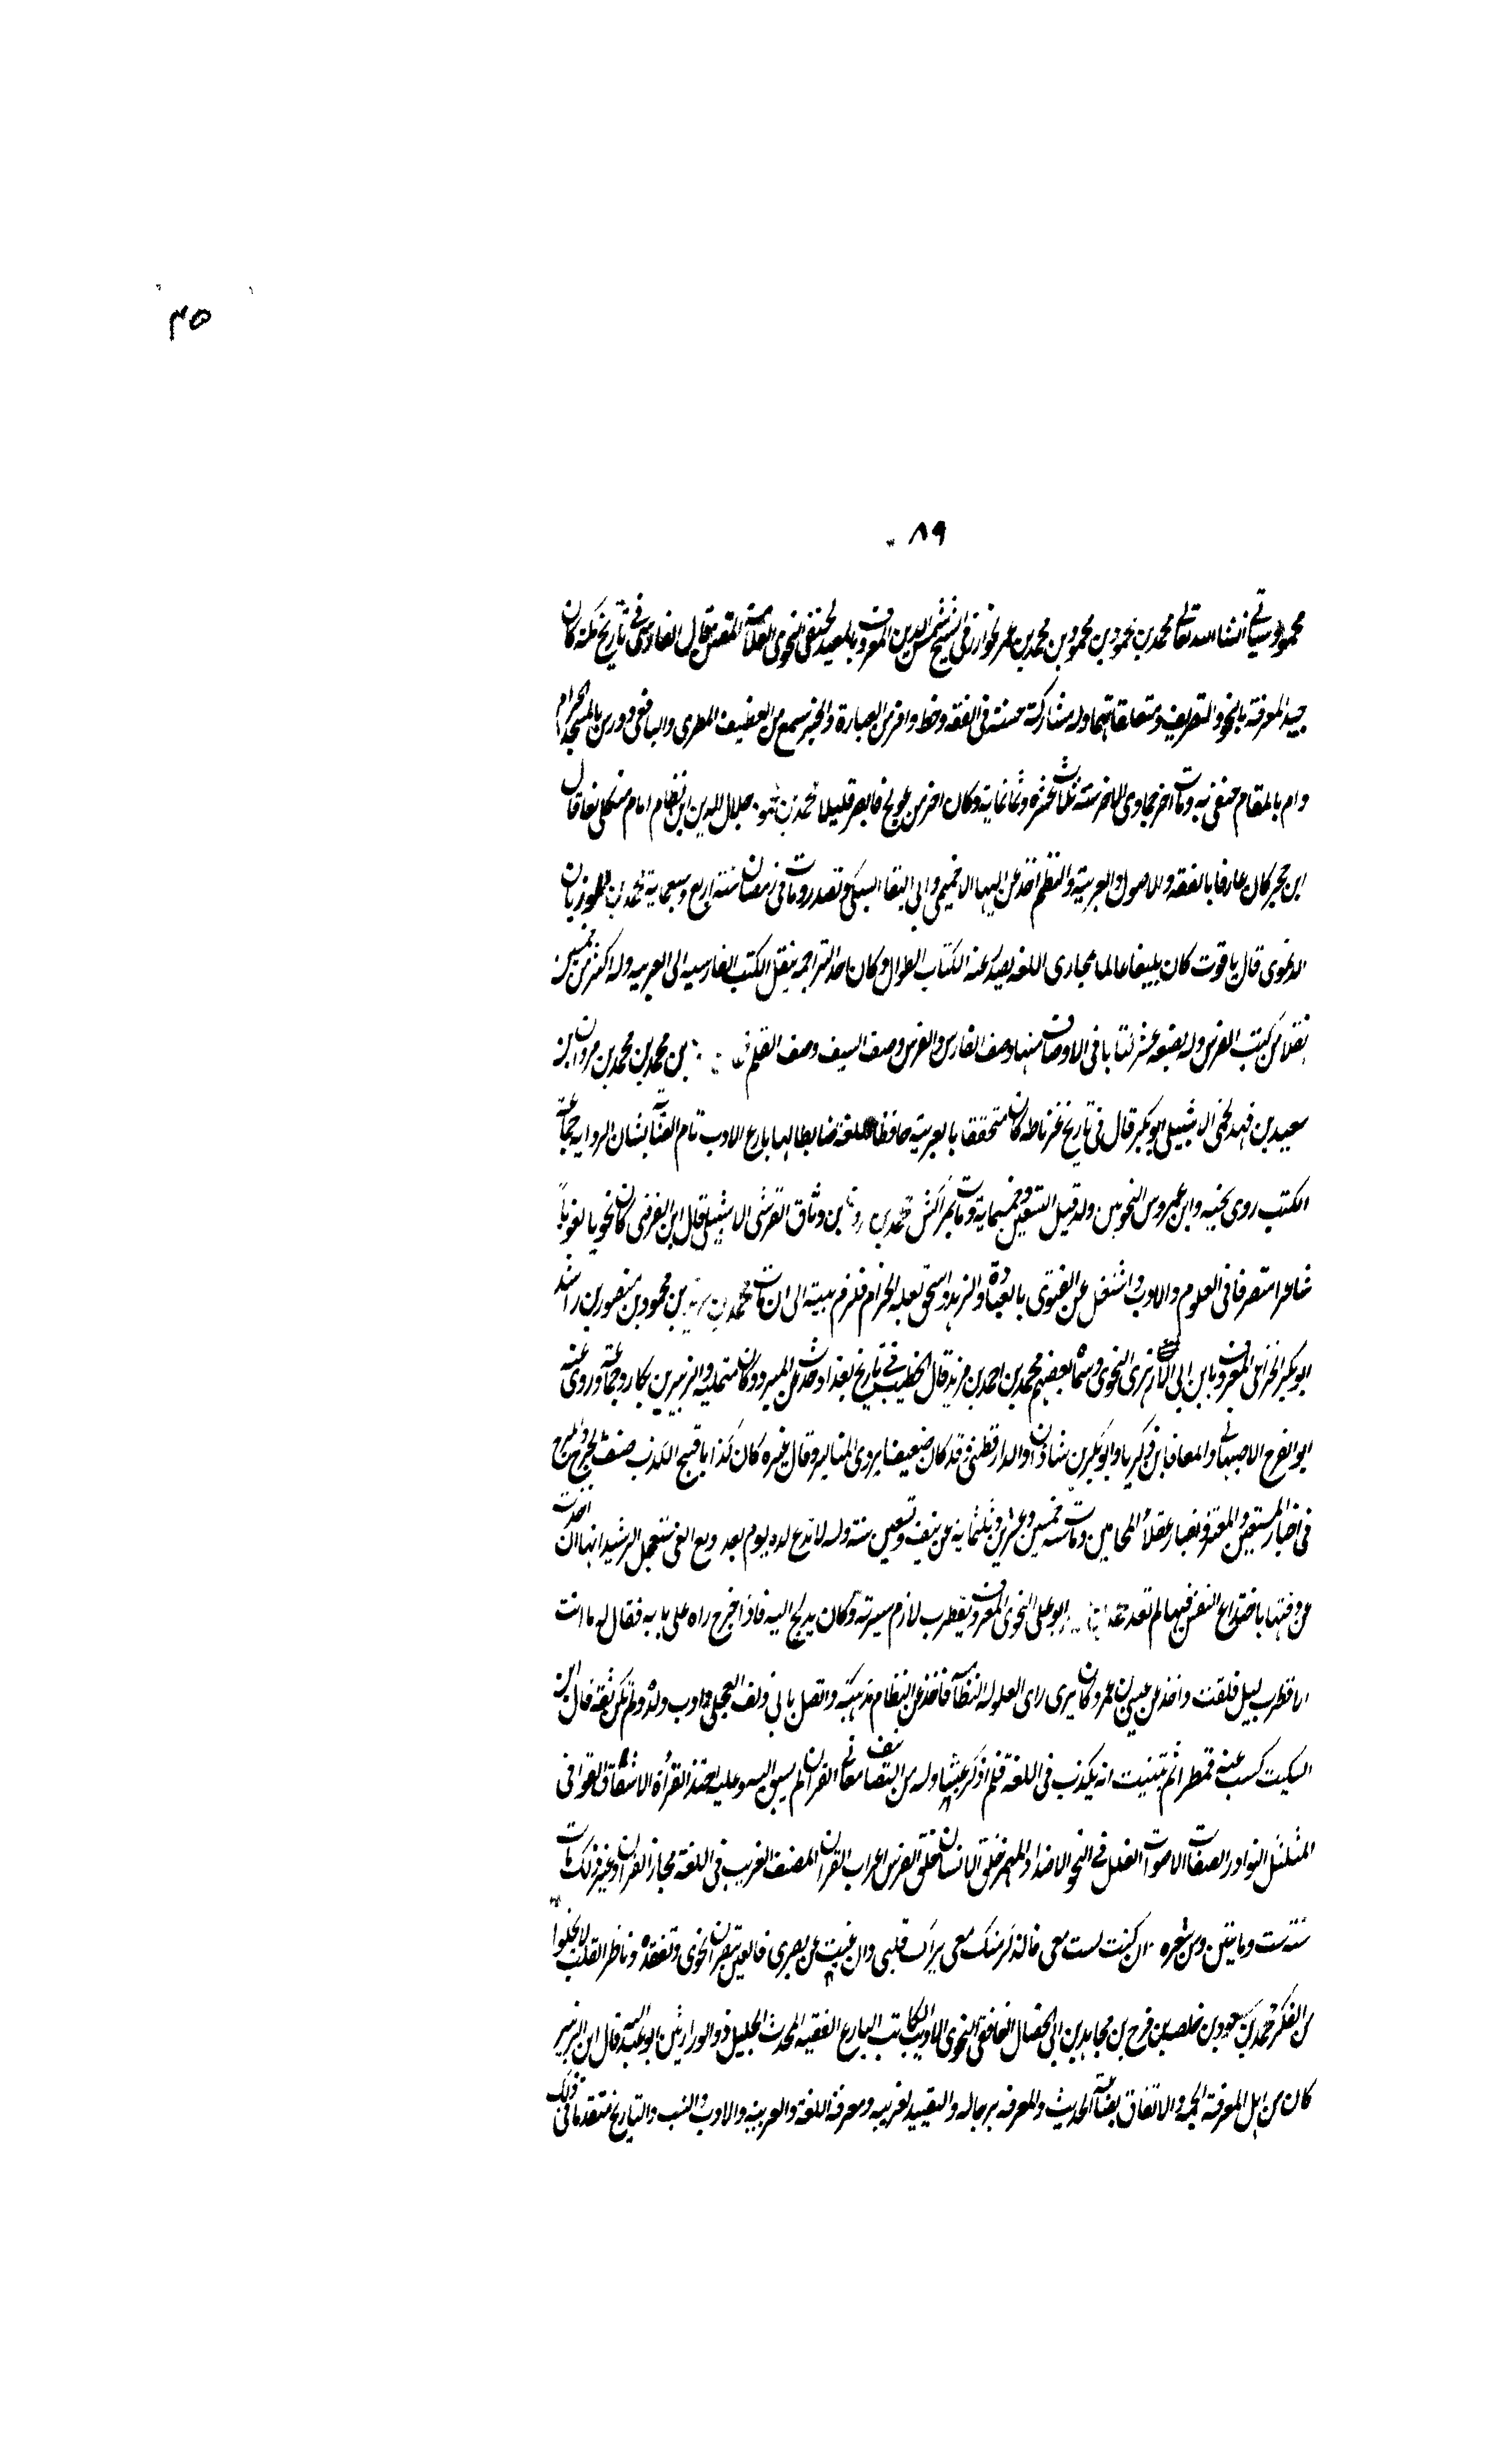 ٤٥
٨٩
محمود وسياتي انشا الله تعالى محمد بن محمود بن محمود بن محمد بن عمر الخوارزمي الشيخ شمس الدين المعروف بالمعيد الحنفي النحوي العلامة المفنن قال الفاسي في تاريخ مكة كان
جيد المعرفة بالنحو والتصريف ومتعلقاتهما وله مشاركة حسنة في الفقه وخط وافر من العبارة والخير سمع من العفيف المطري واليافعي ودرس بالمسجد الحرام
وام بالمقام حنفي به ومات اخر جمادى الاخر سنة ثلاث عشره وثمانماية وكان اخر من عولج فابصر قليلا محمد بن جلال الدين ابن نظام امام منكلي بغا قال
ابن حجر كان عارفا بالفقه والاصول والعربية والنظم اخذ عن البها الاخميمي وابي البقا السبكي وتصدر ومات في رمضان سنة اربع وسبعماية محمد بن المرزبان
الدغوي قال ياقوت كان بليغا عالما بمجاري اللغه يصير عنه الكتاب الطوال وكان احد التراجمه ينقل الكتب الفارسيه الى العربيه وله اكثر من خمسين
نقلا من كتب الفرس وله بضعة عشر كتابا في الاوصاف منها وصف الفارس والفرس وصف السيف وصف القلم بن محمد بن محمد بن مروان بن
سعيد بن فهد اللخمي الاشبيلي ابو بكر قال في تاريخ غرناطه كان متحققا بالعربية حافظا للغة ضابطا لها بارع الادب تام العناية بشان الرواية جماعة
الكتب روى بجنبه وابن عمروس النحويين ولد قبيل التسعين وخمسماية ومات بمراكش محمد بن بن وثاق القرشي الاشبيلي قال ابن الفرضي كان نحويا لغويا
شاعرا متصرفا في العلوم والاداب واشتغل عن الفتوى بالعبادة والزهد واسحق تعبله الحزام فلزم بيته الى ان مات محمد بن بن محمود بن منصور بن راشد
ابو بكر الخزاعي المعروف بابن ابي الازهري النحوي وسماه بعضهم محمد بن احمد بن مزيد قال الخطيب في تاريخ بغداد حدث عن المبرد وكان مستمليه والزبير بن بكار وجماعة وروى عنه
ابو الفرج الاصبهاني والمعافا بن زكريا وابو بكر بن شاذان والدارقطني وقد كان ضعيفا يروي المناكير وقال غيره كان كذابا قبيح الكذب صنف الهرج والمرج
في اخبار المستعين والمعتز واخبار عقلاء المجانين ومات سنة خمس وعشرين وثلثماية عن نيف وتسعين سنة وله لا تدع لذة يوم بعد وبع الغي بتعجل الرشيد انها ان اخرت
عن وقتها باختداع النفس فيها لم تعد ابو علي النحوي المعروف بقطرب لازم سيبويه وكان يدلج اليه فاذا خرج راه على بابه فقال له ما انت
الا قطرب ليل فلقب واخذ عن عيسى بن عمر وكان يرى راي المعتزله النظامية فاخذ عن النظام مذهبه واتصل بابي دلف العجلي وادب ولده ولم يكن ثقة قال ابن
السكيت كتبت عنه قمطرا ثم تبينت انه يكذب في اللغة فلم اذكر عنه شيا وله من التصانيف معاني القران لم يسبق اليه وعليه احتذ القراء الاشتقاق القوافي
المثلث النوادر الصفات الاصوات العلل في النحو الاضداد الهمز خلق الانسان خلق الفرس اعراب القران المصنف الغريب في اللغة مجاز القران وغير ذلك مات
سنة ست ومايتين ومن شعره ان كنت لست معي فالذكر منك معي يراك قلبي وان غيبت عن بصري فالعين تبصر من تهوى وتفقده وناظر القلب لا يخلوا
من الفكر محمد بن مسعود بن خلصة بن فرج بن مجاهد بن ابي الخصال الغافقي النحوي الاديب الكاتب البارع الفقيه المحدث الجليل ذو الوزارتين ابو عبد الله قال ابن الزبير
كان من اهل المعرفة الجمة والاتقان بصناعة الحديث والمعرفه برجاله والتقييد لغريبه ومعرفة اللغة والعربيه والادب والنسب والتاريخ متقدما في ذلك